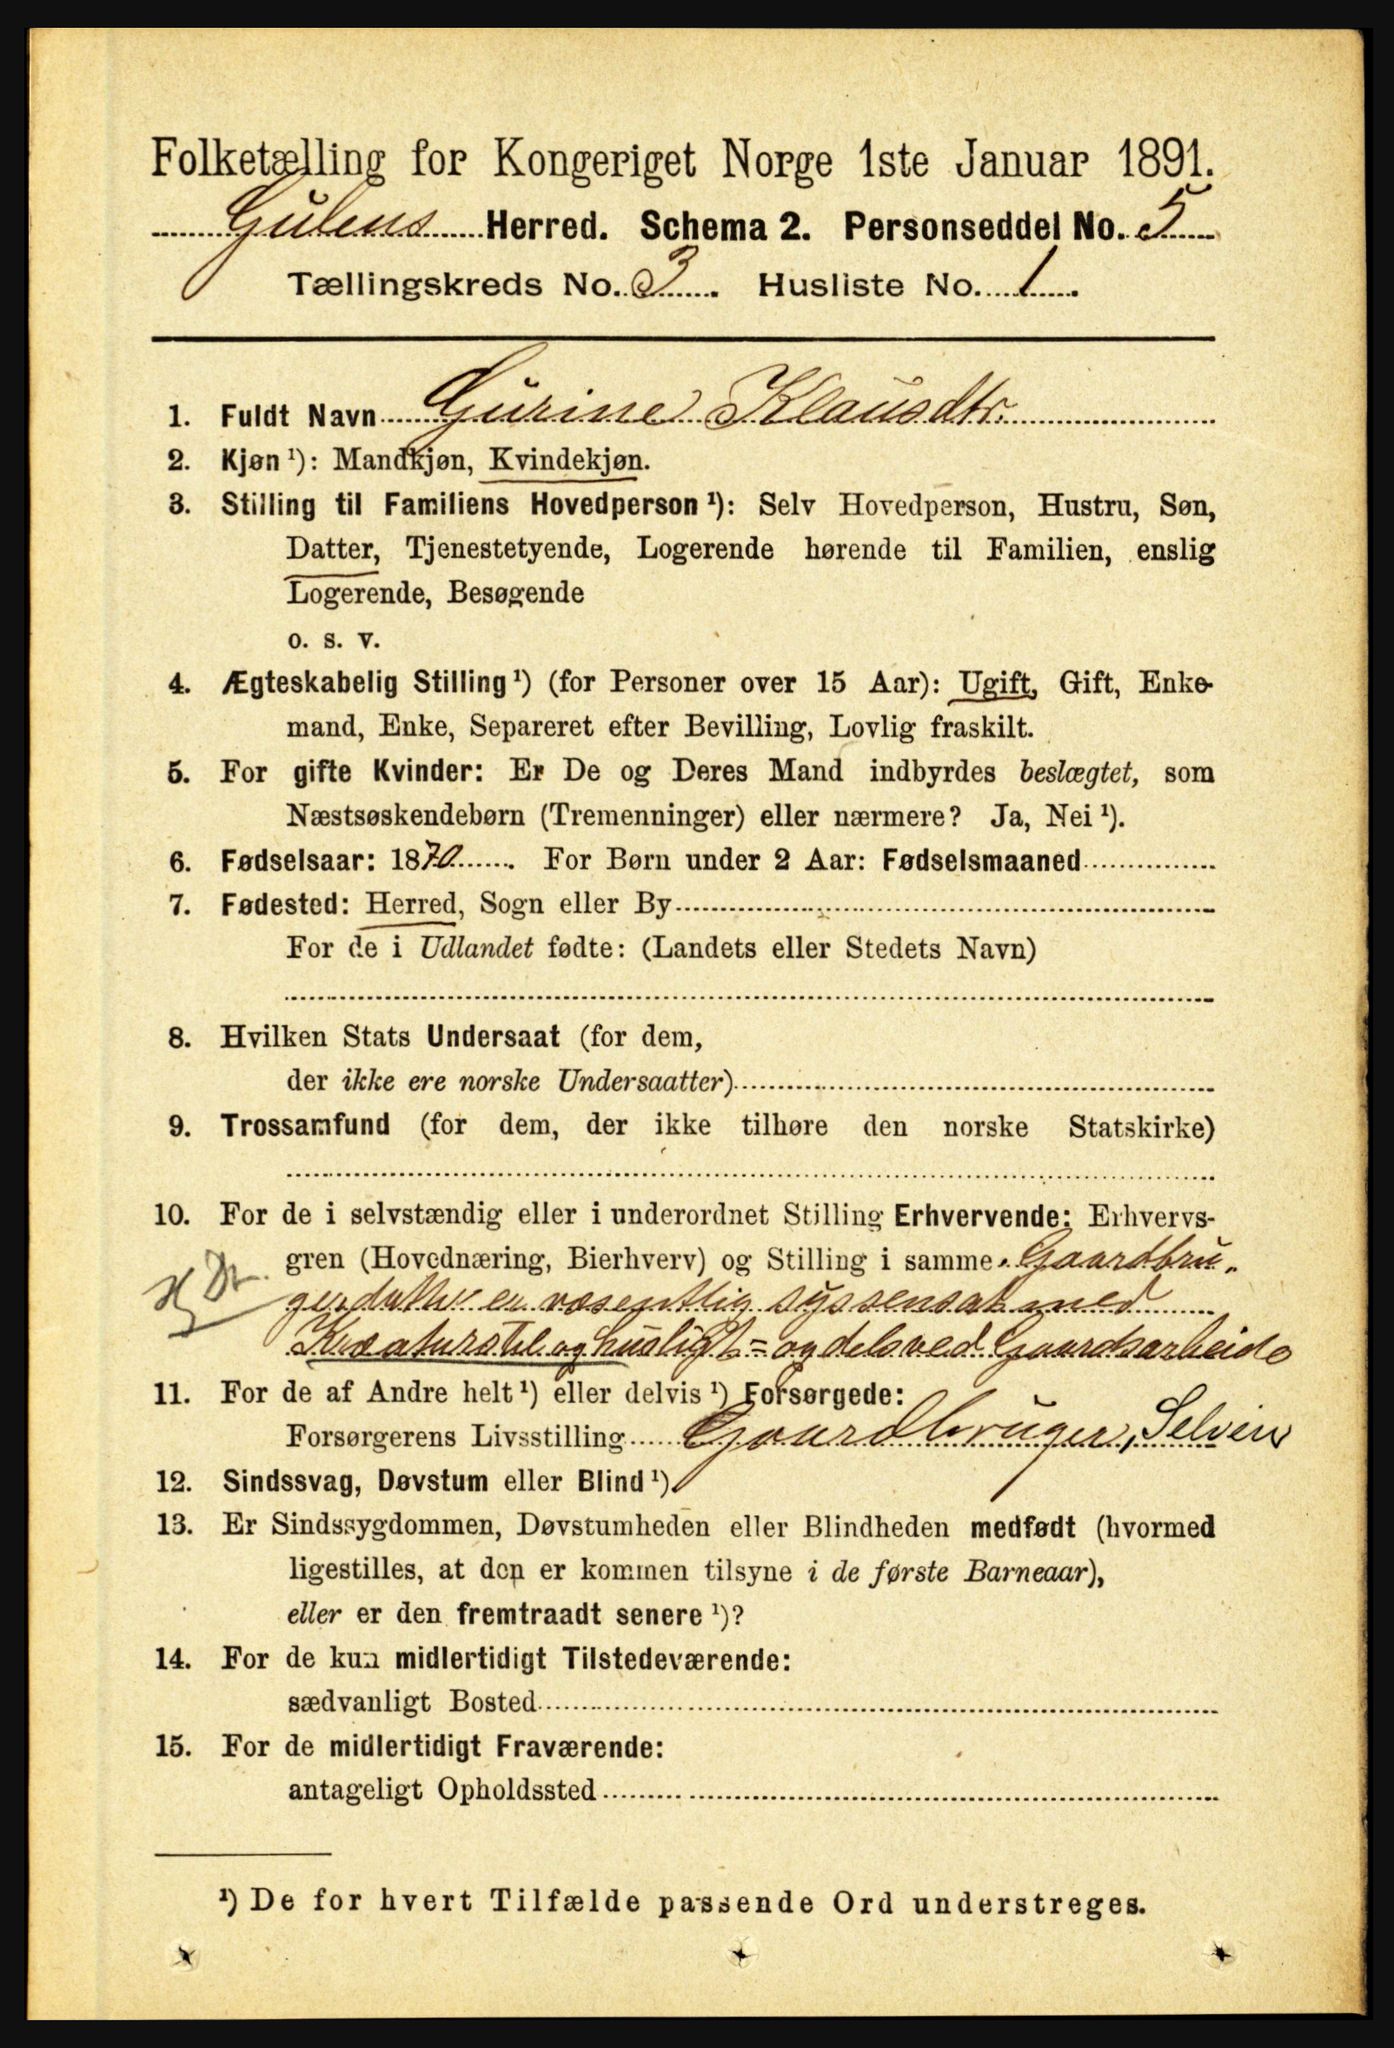 Folketælling for Kongeriget Norge 1ste Januar 1891.
Gulens Herred. Schema 2. Personseddel No. 5
Tællingskreds No. 3. Husliste No. 1.
1. Fuldt Navn Gurine Klausdtr.
2. Kjøn ¹): Mandkjøn, Kvindekjøn.
3. Stilling til Familiens Hovedperson ¹): Selv Hovedperson, Hustru, Søn,
Datter, Tjenestetyende, Logerende hørende til Familien, enslig
Logerende, Besøgende
o. s. v.
4. Ægteskabelig Stilling ¹) (for Personer over 15 Aar): Ugift, Gift, Enke-
mand, Enke, Separeret efter Bevilling, Lovlig fraskilt.
5. For gifte Kvinder: Er De og Deres Mand indbyrdes beslægtet, som
Næstsøskendebørn (Tremenninger) eller nærmere? Ja, Nei ¹).
6. Fødselsaar: 1870. For Børn under 2 Aar: Fødselsmaaned
7. Fødested: Herred, Sogn eller By
For de i Udlandet fødte: (Landets eller Stedets Navn)
8. Hvilken Stats Undersaat (for dem,
der ikke ere norske Undersaatter)
9. Trossamfund (for dem, der ikke tilhøre den norske Statskirke)
10. For de i selvstændig eller i underordnet Stilling Erhvervende: Erhvervs-
gren (Hovednæring, Bierhverv) og Stilling i samme. Gaardbru-
gerdatter er væsentlig syssensat med
Kreaturstel og husligt= og dels ved Gaardsarbeide
11. For de af Andre helt ¹) eller delvis ¹) Forsørgede:
Forsørgerens Livsstilling Gaardbruger, Selveier
12. Sindssvag, Døvstum eller Blind ¹)
13. Er Sindssygdommen, Døvstumheden eller Blindheden medfødt (hvormed
ligestilles, at den er kommen tilsyne i de første Barneaar),
eller er den fremtraadt senere ¹)?
14. For de kun midlertidigt Tilstedeværende:
sædvanligt Bosted
15. For de midlertidigt Fraværende:
antageligt Opholdssted
¹) De for hvert Tilfælde passende Ord understreges.